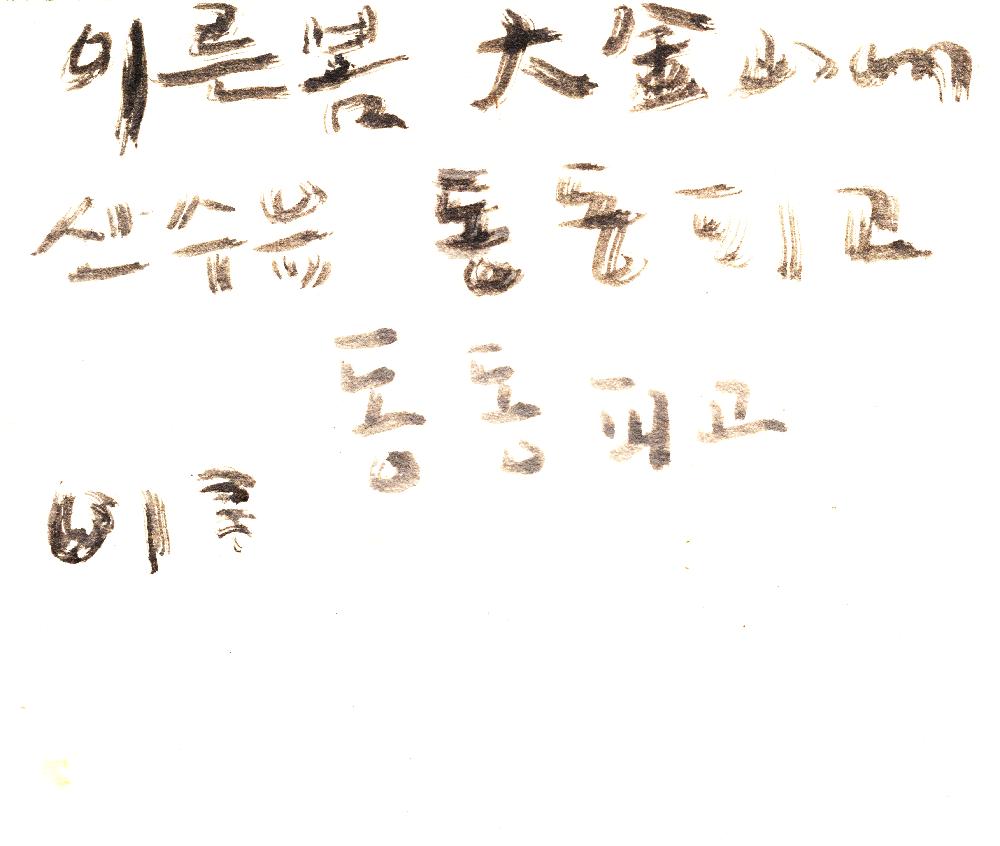 이른봄 大金山에
산수유 동동 피고
동동 피고
비고